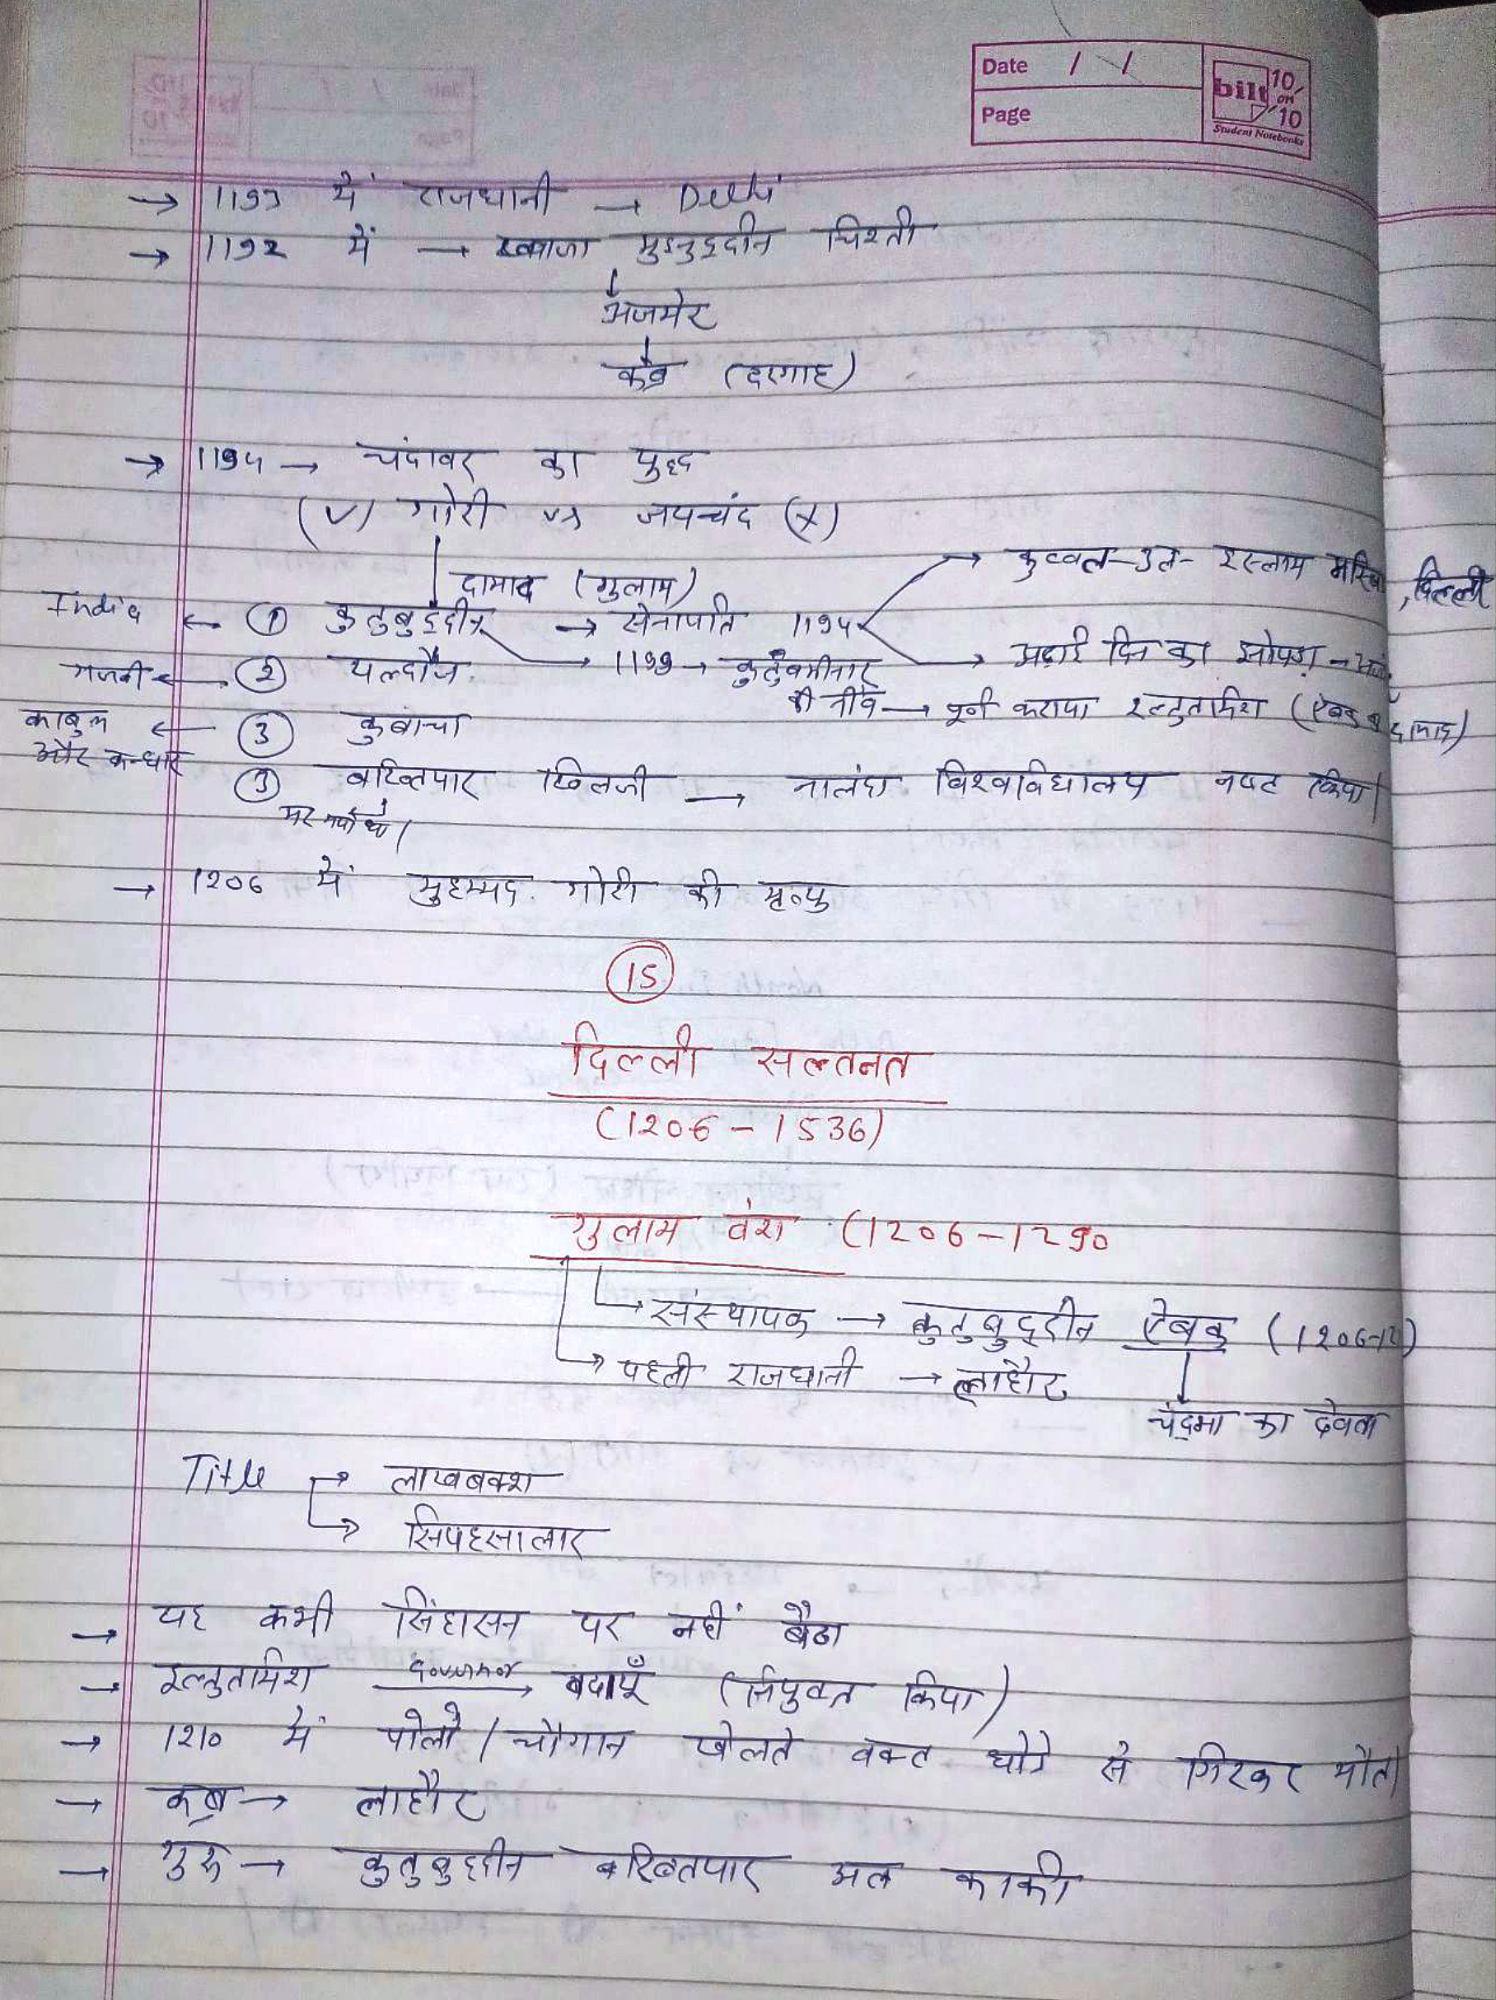 Date / /
Page
bilt 10 on 10
Student Notebooks
→ 1193 में राजधानी → Delhi
→ 1192 में → ख्वाजा मुइनुद्दीन चिश्ती
↓
अजमेर
↓
कब्र (दरगाह)
→ 1194 → चंदावर का युद्ध
(✓) गोरी vs जयचंद (×)
दामाद (गुलाम)
→ कुव्वत-उल-इस्लाम मस्जि, दिल्ली
India ← ① कुतुबुद्दीन → सेनापति 1194
→ 1199 → कुतुबमीनार
→ अढ़ाई दिन का झोपड़ा -
गजनी ← ② यल्दौज
की नींव → पूर्ण कराया इल्तुतमिश (ऐबक का दामाद)
काबुल और कन्धार ← ③ कुबाचा
③ बख्तियार खिलजी → नालंदा विश्वविद्यालय नष्ट किया।
मर गया था।
→ 1206 में मुहम्मद गोरी की मृत्यु
15
दिल्ली सल्तनत
(1206 - 1536)
गुलाम वंश (1206 - 1290
→ संस्थापक → कुतुबुद्दीन ऐबक (1206-12)
→ पहली राजधानी → लाहौर
चंद्रमा का देवता
Title → लाखबक्श
→ सिपहसालार
→ यह कभी सिंहासन पर नहीं बैठा
→ इल्तुतमिश governor → बदायूँ (नियुक्त किया)
→ 1210 में पोलो / चौगान खेलते वक्त घोड़े से गिरकर मौत।
→ कब्र → लाहौर
→ गुरु → कुतुबुद्दीन बख्तियार अल काकी